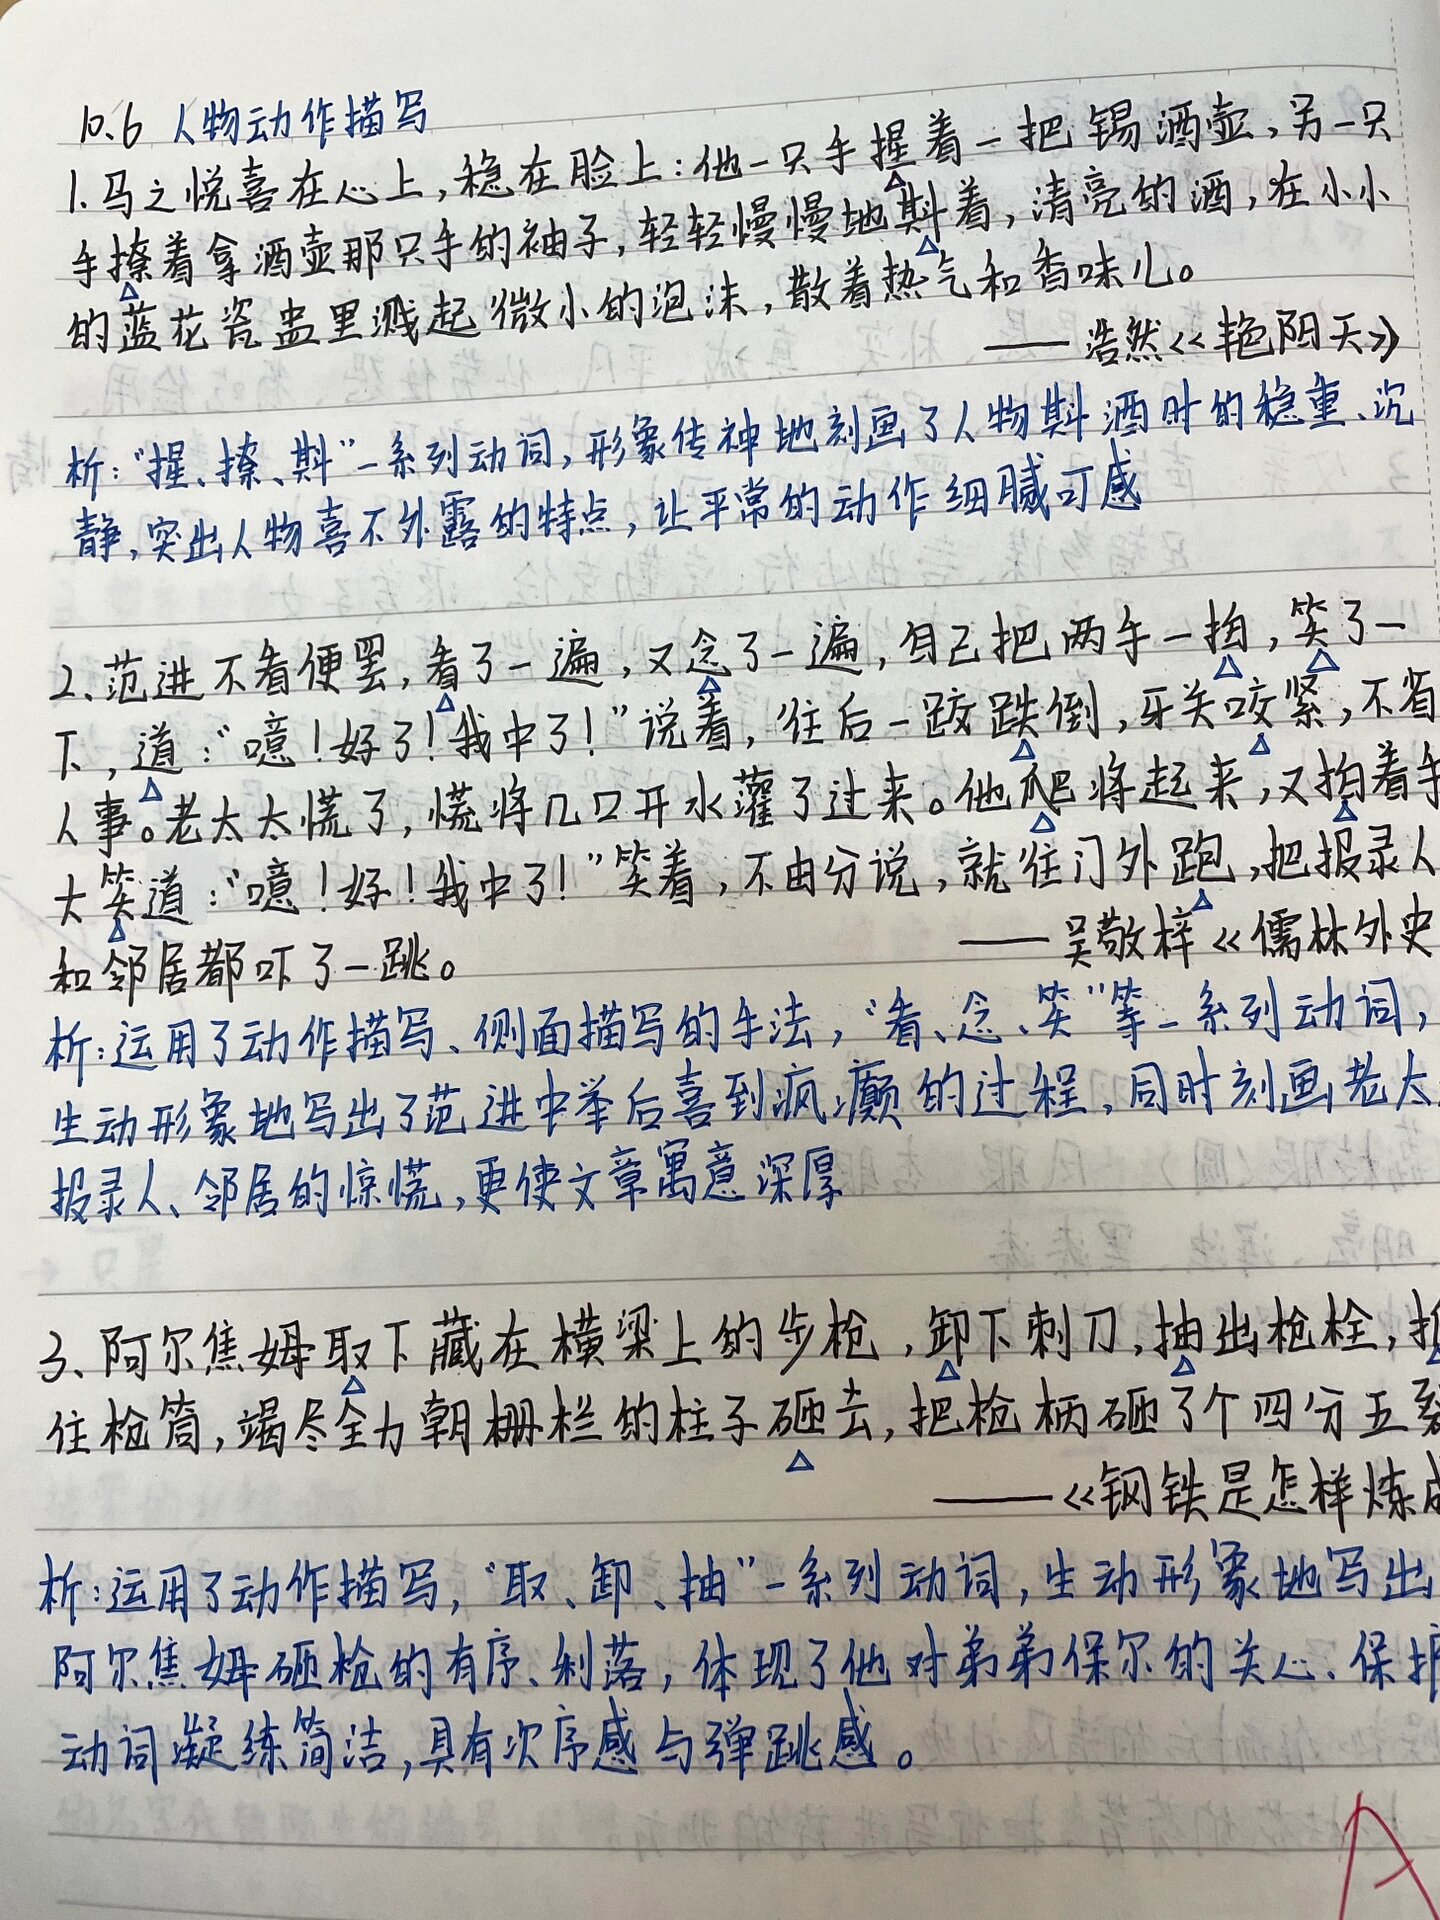 10.6 人物动作描写
1.马之悦喜在心上,稳在脸上:他一只手握着一把锡酒壶,另一只
手撩着拿酒壶那只手的袖子,轻轻慢慢地斟着,清亮的酒,在小小
的蓝花瓷盅里溅起微小的泡沫,散着热气和香味儿。
——浩然《艳阳天》
析:“握、撩、斟”一系列动词,形象传神地刻画了人物斟酒时的稳重、沉
静,突出人物喜不外露的特点,让平常的动作细腻可感
2、范进不看便罢,看了一遍,又念了一遍,自己把两手一拍,笑了一
下,道:“噫!好了!我中了!”说着,往后一跤跌倒,牙关咬紧,不省
人事。老太太慌了,慌将几口开水灌了过来。他爬将起来,又拍着手
大笑道:“噫!好!我中了!”笑着,不由分说,就往门外跑,把报录人
和邻居都吓了一跳。
——吴敬梓《儒林外史
析:运用了动作描写、侧面描写的手法,“看、念、笑”等一系列动词,
生动形象地写出了范进中举后喜到疯癫的过程,同时刻画老太
报录人、邻居的惊慌,更使文章寓意深厚
3、阿尔焦姆取下藏在横梁上的步枪,卸下刺刀,抽出枪栓,
住枪筒,竭尽全力朝栅栏的柱子砸去,把枪柄砸了个四分五裂
——《钢铁是怎样炼成
析:运用了动作描写,“取、卸、抽”一系列动词,生动形象地写出
阿尔焦姆砸枪的有序、利落,体现了他对弟弟保尔的关心、保护
动词凝练简洁,具有次序感与弹跳感。
A